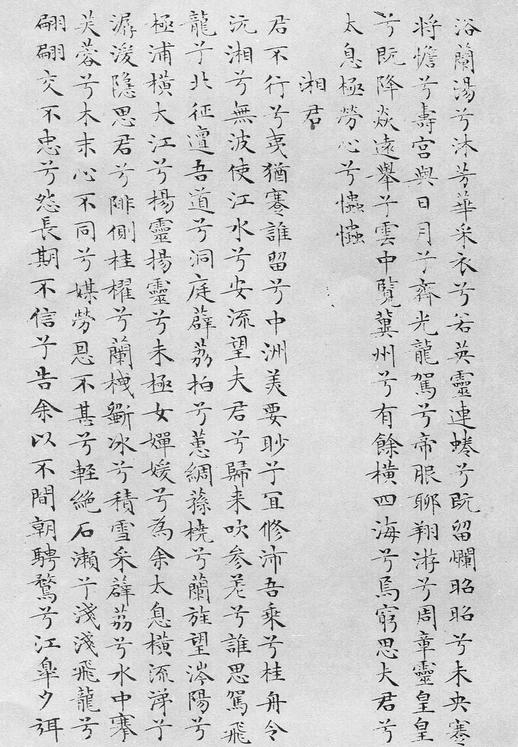 浴蘭湯兮沐芳華采衣兮若英靈連蜷兮既留爛昭昭兮未央蹇
將憺兮壽宮與日月兮齊光龍駕兮帝服聊翔游兮周章靈皇皇
兮既降焱遠舉兮雲中覽冀州兮有餘橫四海兮焉窮思夫君兮
太息極勞心兮忡忡
湘君
君不行兮夷猶蹇誰留兮中洲美要眇兮宜修沛吾乘兮桂舟令
沅湘兮無波使江水兮安流望夫君兮歸来吹参差兮誰思駕飛
龍兮北征邅吾道兮洞庭薜荔拍兮蕙綢蓀橈兮蘭旌望涔陽兮
極浦橫大江兮揚靈揚靈兮未極女嬋媛兮為余太息橫流涕兮
潺湲隱思君兮陫側桂櫂兮蘭枻斲冰兮積雪采薜荔兮水中搴
芙蓉兮木末心不同兮媒勞恩不甚兮輕絕石瀨兮淺淺飛龍兮
翩翩交不忠兮怨長期不信兮告余以不間朝騁騖兮江皋夕弭